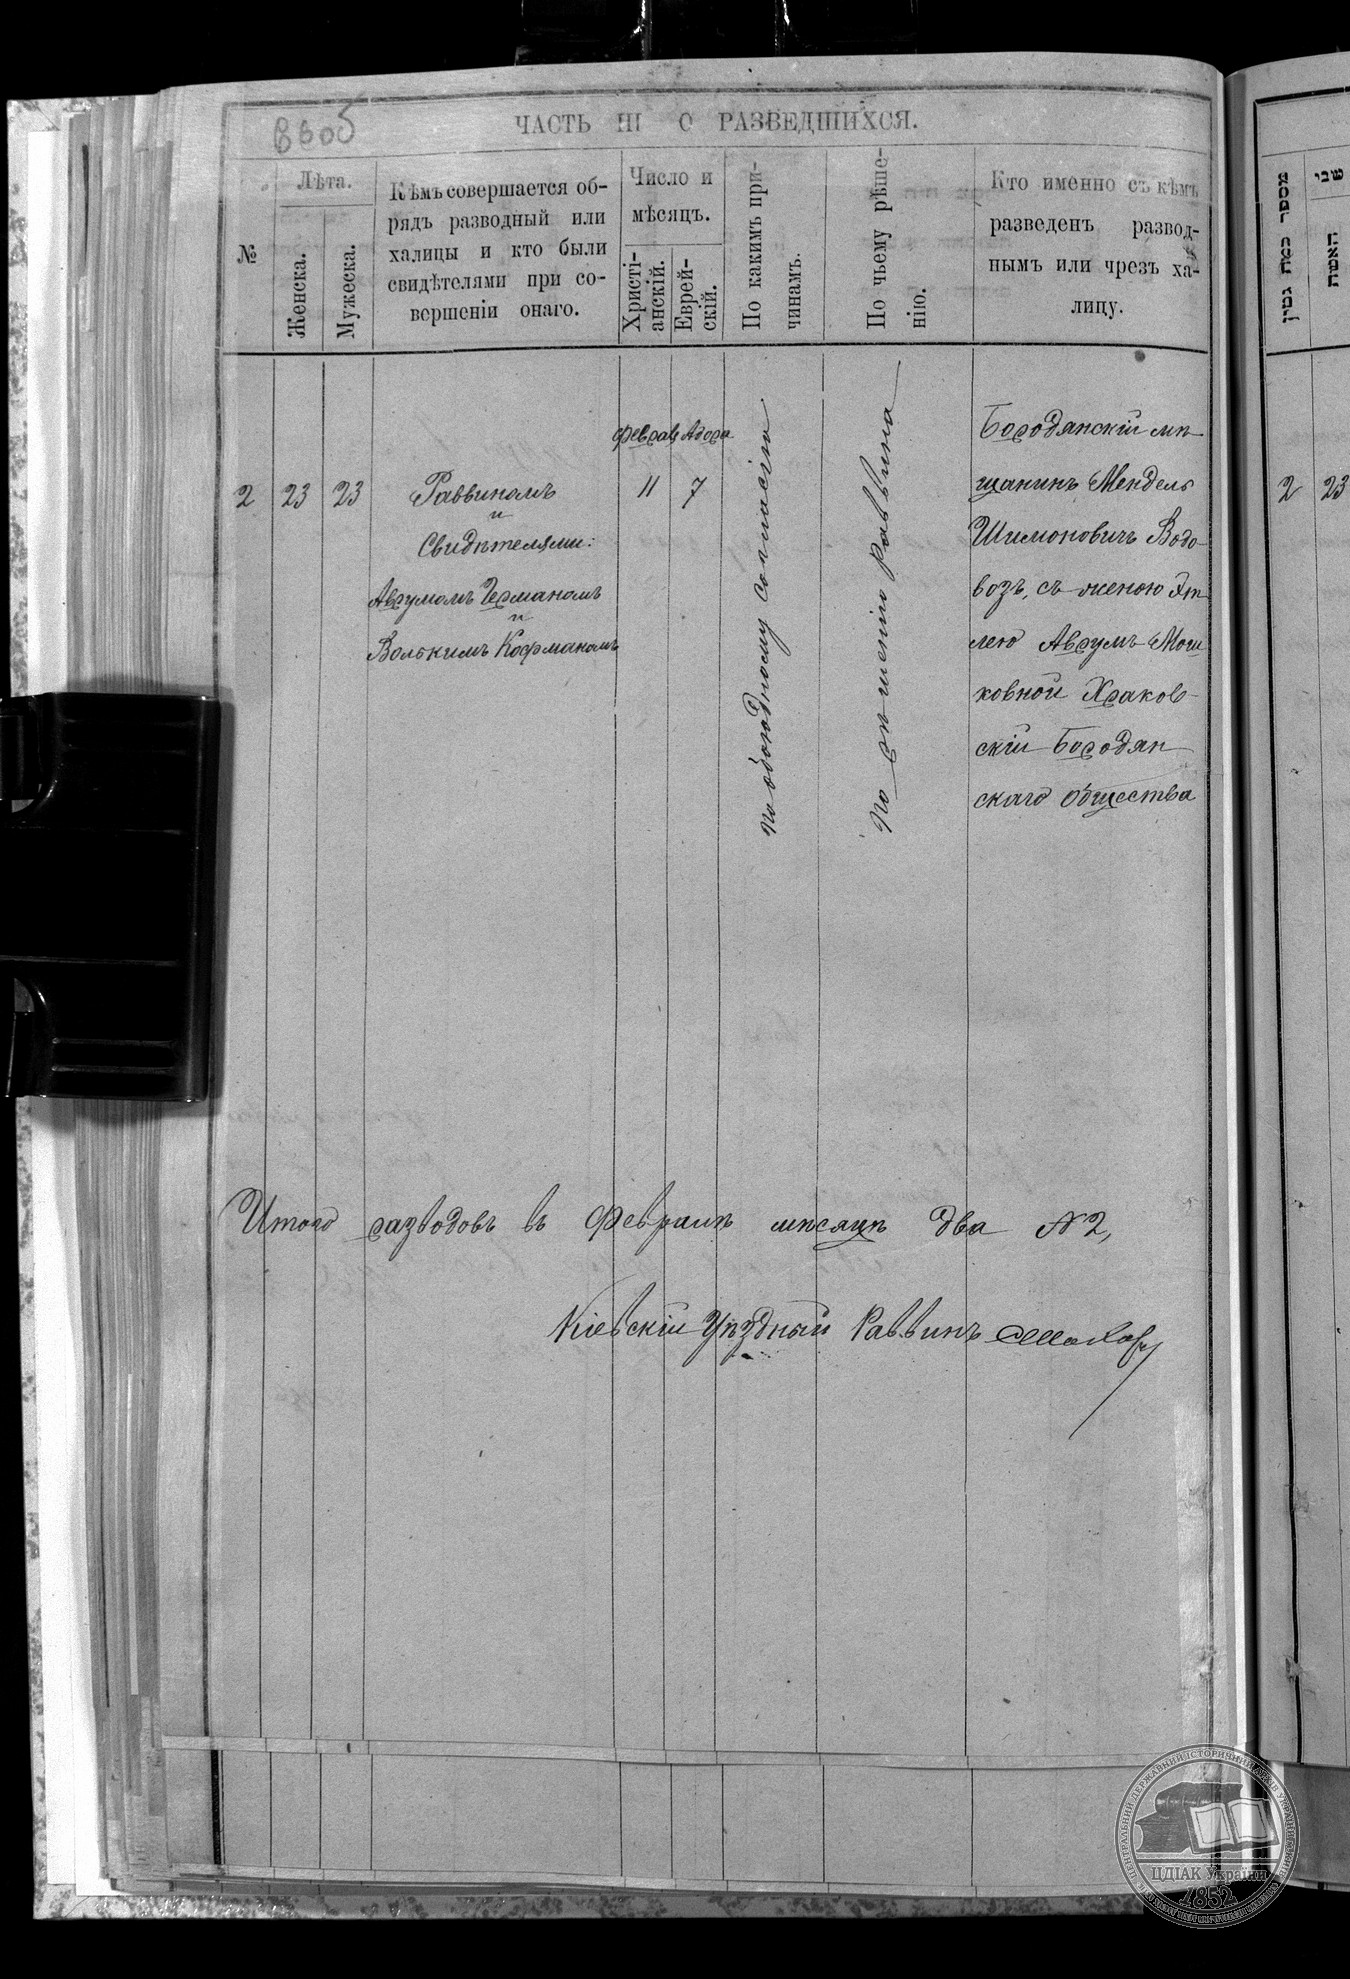 ЧАСТЬ III О РАЗВЕДШИХСЯ.
№
Лѣта.
Женска.
Мужеска.
Кѣмъ совершается об-
рядъ разводный или
халицы и кто были
свидѣтелями при со-
вершеніи онаго.
Число и
мѣсяцъ.
Христі-
анскій.
Еврей-
скій.
По какимъ при-
чинамъ.
По чьему рѣше-
нію.
Кто именно съ кѣмъ
разведенъ развод-
нымъ или чрезъ ха-
лицу.
2
23
23
Раввиномъ
и
Свидѣтелями:
Аврумомъ Германомъ
и
Волькимъ Кофманомъ
Феврал
11
Адара
7
по обоюдному согласію
по рѣшенію раввина
Бородянскій мѣ-
щанинъ Мендель
Шимоновичъ Водо-
возъ, съ женою Эт-
лею Аврумъ-Мош-
ковной Храков-
скій Бородян-
скаго общества
Итого разводовъ въ Февралѣ мѣсяцѣ два №2,
Кіевскій Уѣздный Раввинъ
מספר כמה גטין
שני
האשה
2
23
ЦЕНТРАЛЬНИЙ ДЕРЖАВНИЙ ІСТОРИЧНИЙ АРХІВ УКРАЇНИ
ЦДІАК України
1852